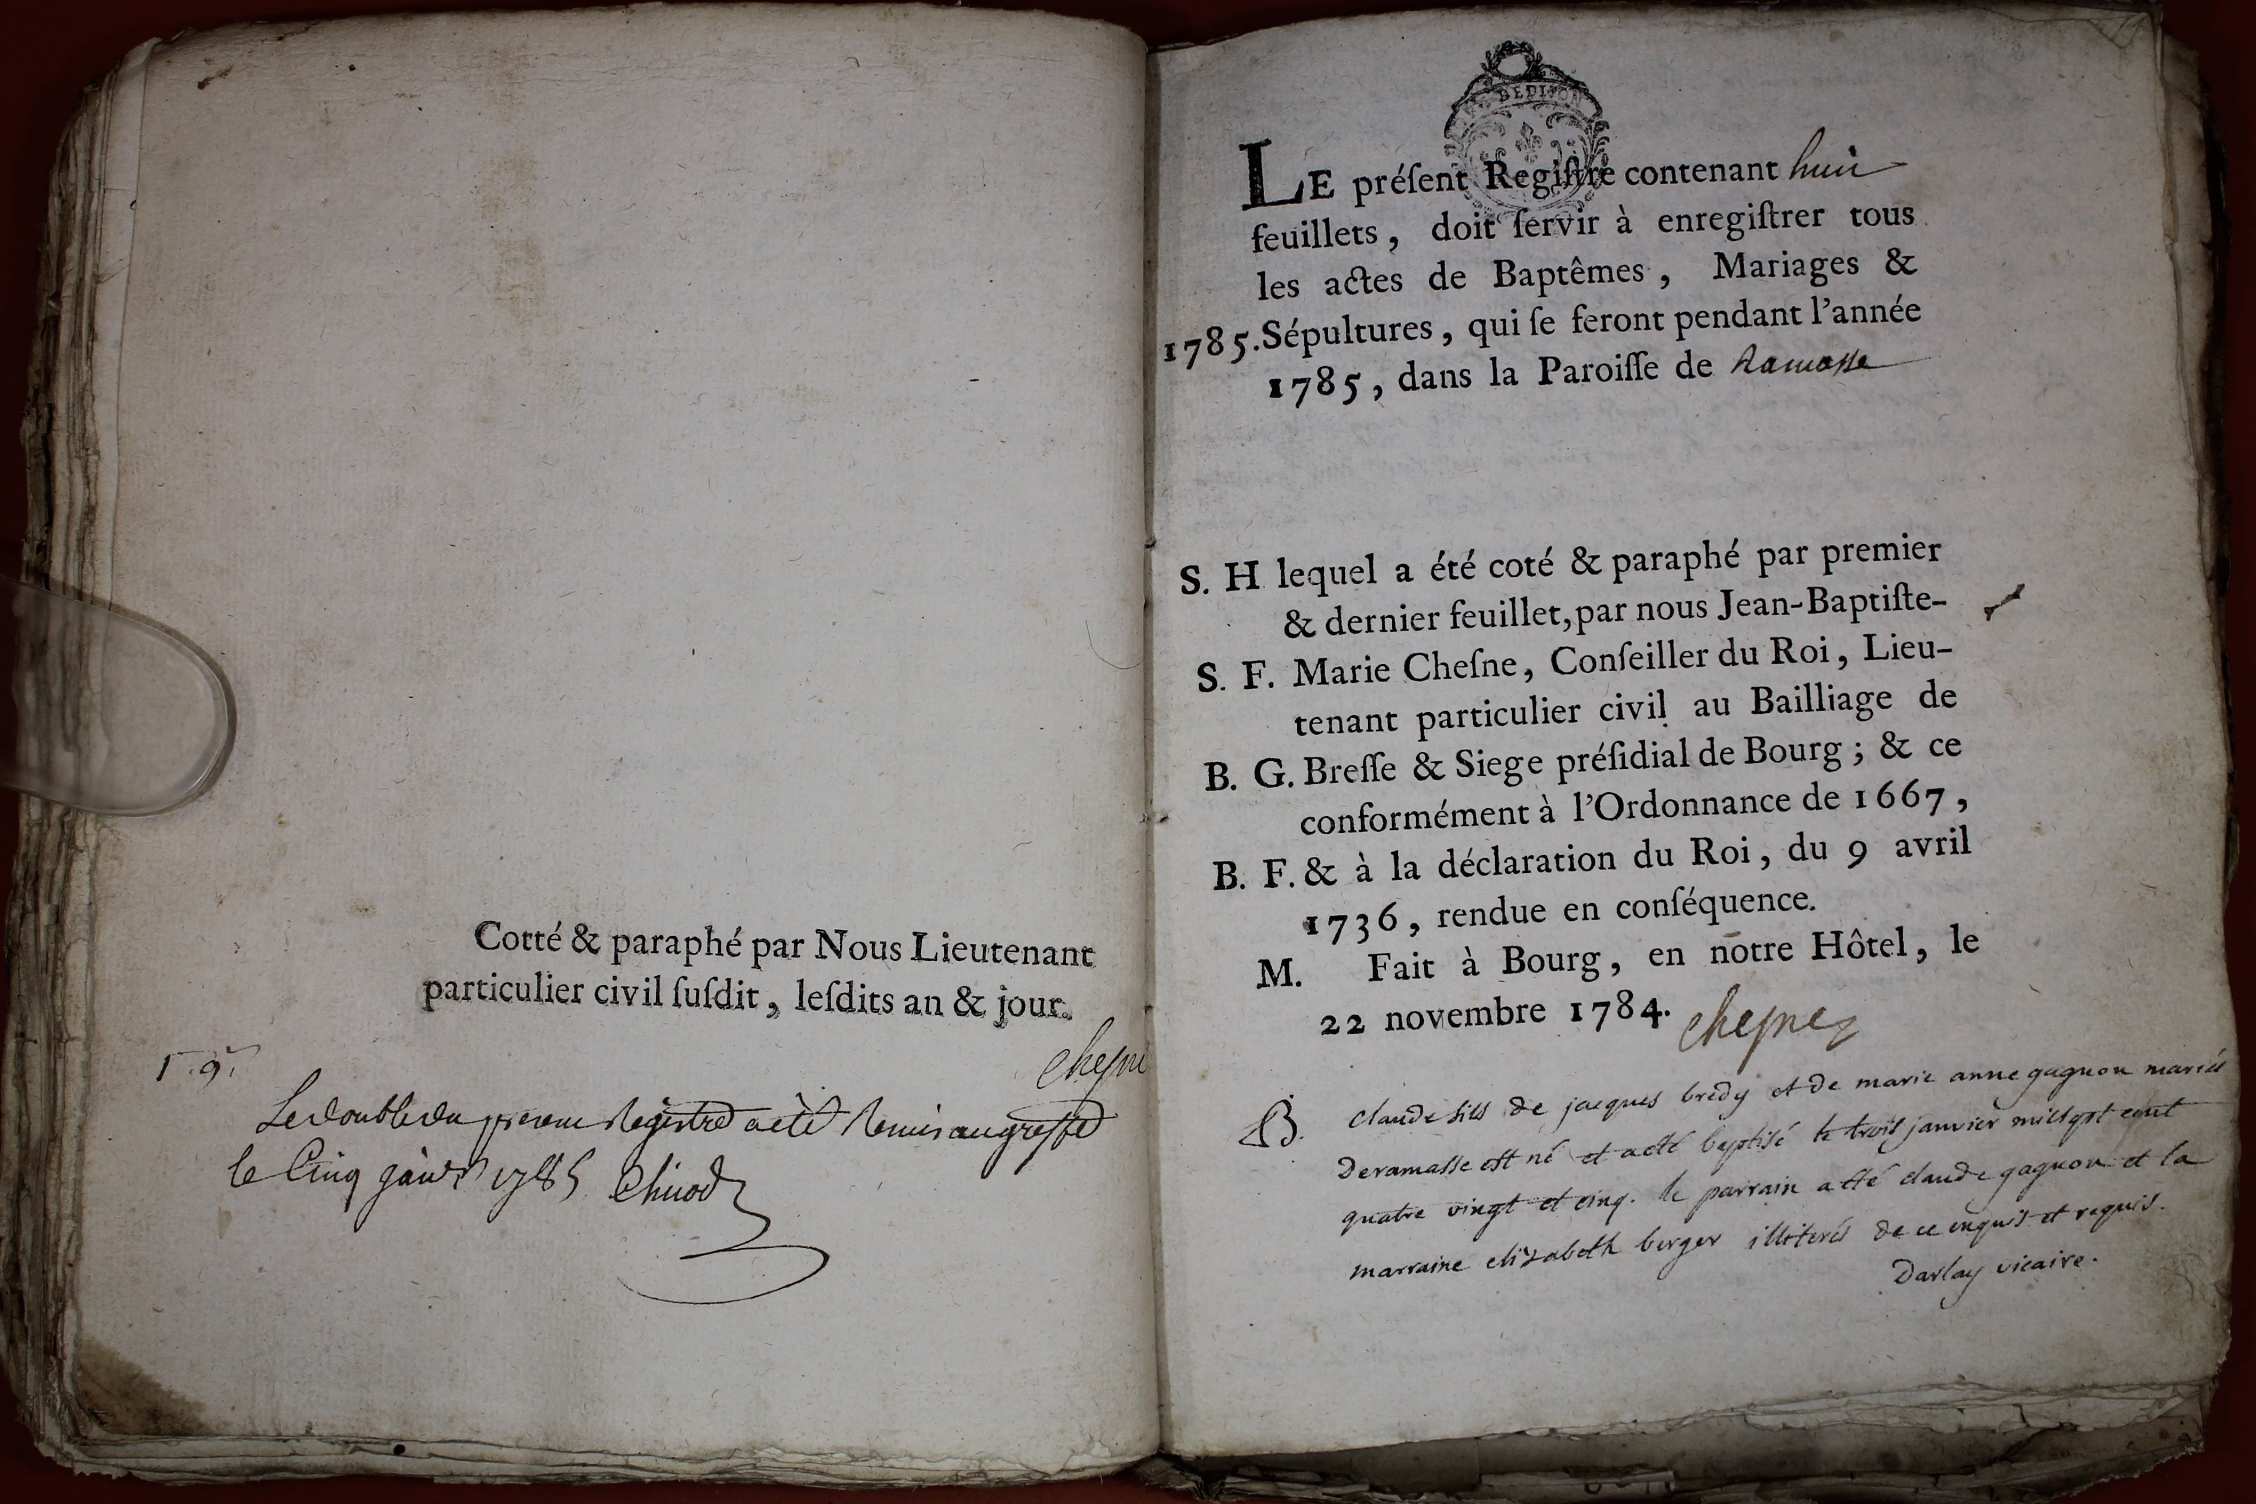 Cotté & paraphé par Nous Lieutenant
particulier civil ſuſdit, leſdits an & jour.
Chesne
Le double du present Registre a été Remis au greffe
le Cinq janvr 1785 Chicod
DE DIJON
LE préſent Regiſtre contenant huit
feuillets, doit ſervir à enregiſtrer tous
les actes de Baptêmes, Mariages &
1785. Sépultures, qui ſe feront pendant l'année
1785, dans la Paroiſſe de Ramasse
S. H lequel a été coté & paraphé par premier
& dernier feuillet, par nous Jean-Baptiſte-
S. F. Marie Cheſne, Conſeiller du Roi, Lieu-
tenant particulier civil au Bailliage de
B. G. Breſſe & Siege préſidial de Bourg; & ce
conformément à l'Ordonnance de 1667,
B. F. & à la déclaration du Roi, du 9 avril
1736, rendue en conſéquence.
M. Fait à Bourg, en notre Hôtel, le
22 novembre 1784. Chesne
B. claude fils de jacques bredy et de marie anne gagnon mariés
deramasse est né et a eté baptisé le trois janvier mil sept cent
quatre vingt et cinq. le parrain a eté claude gagnon et la
marraine elizabeth berger illiterés de ce enquis et requis.
Darlay vicaire.